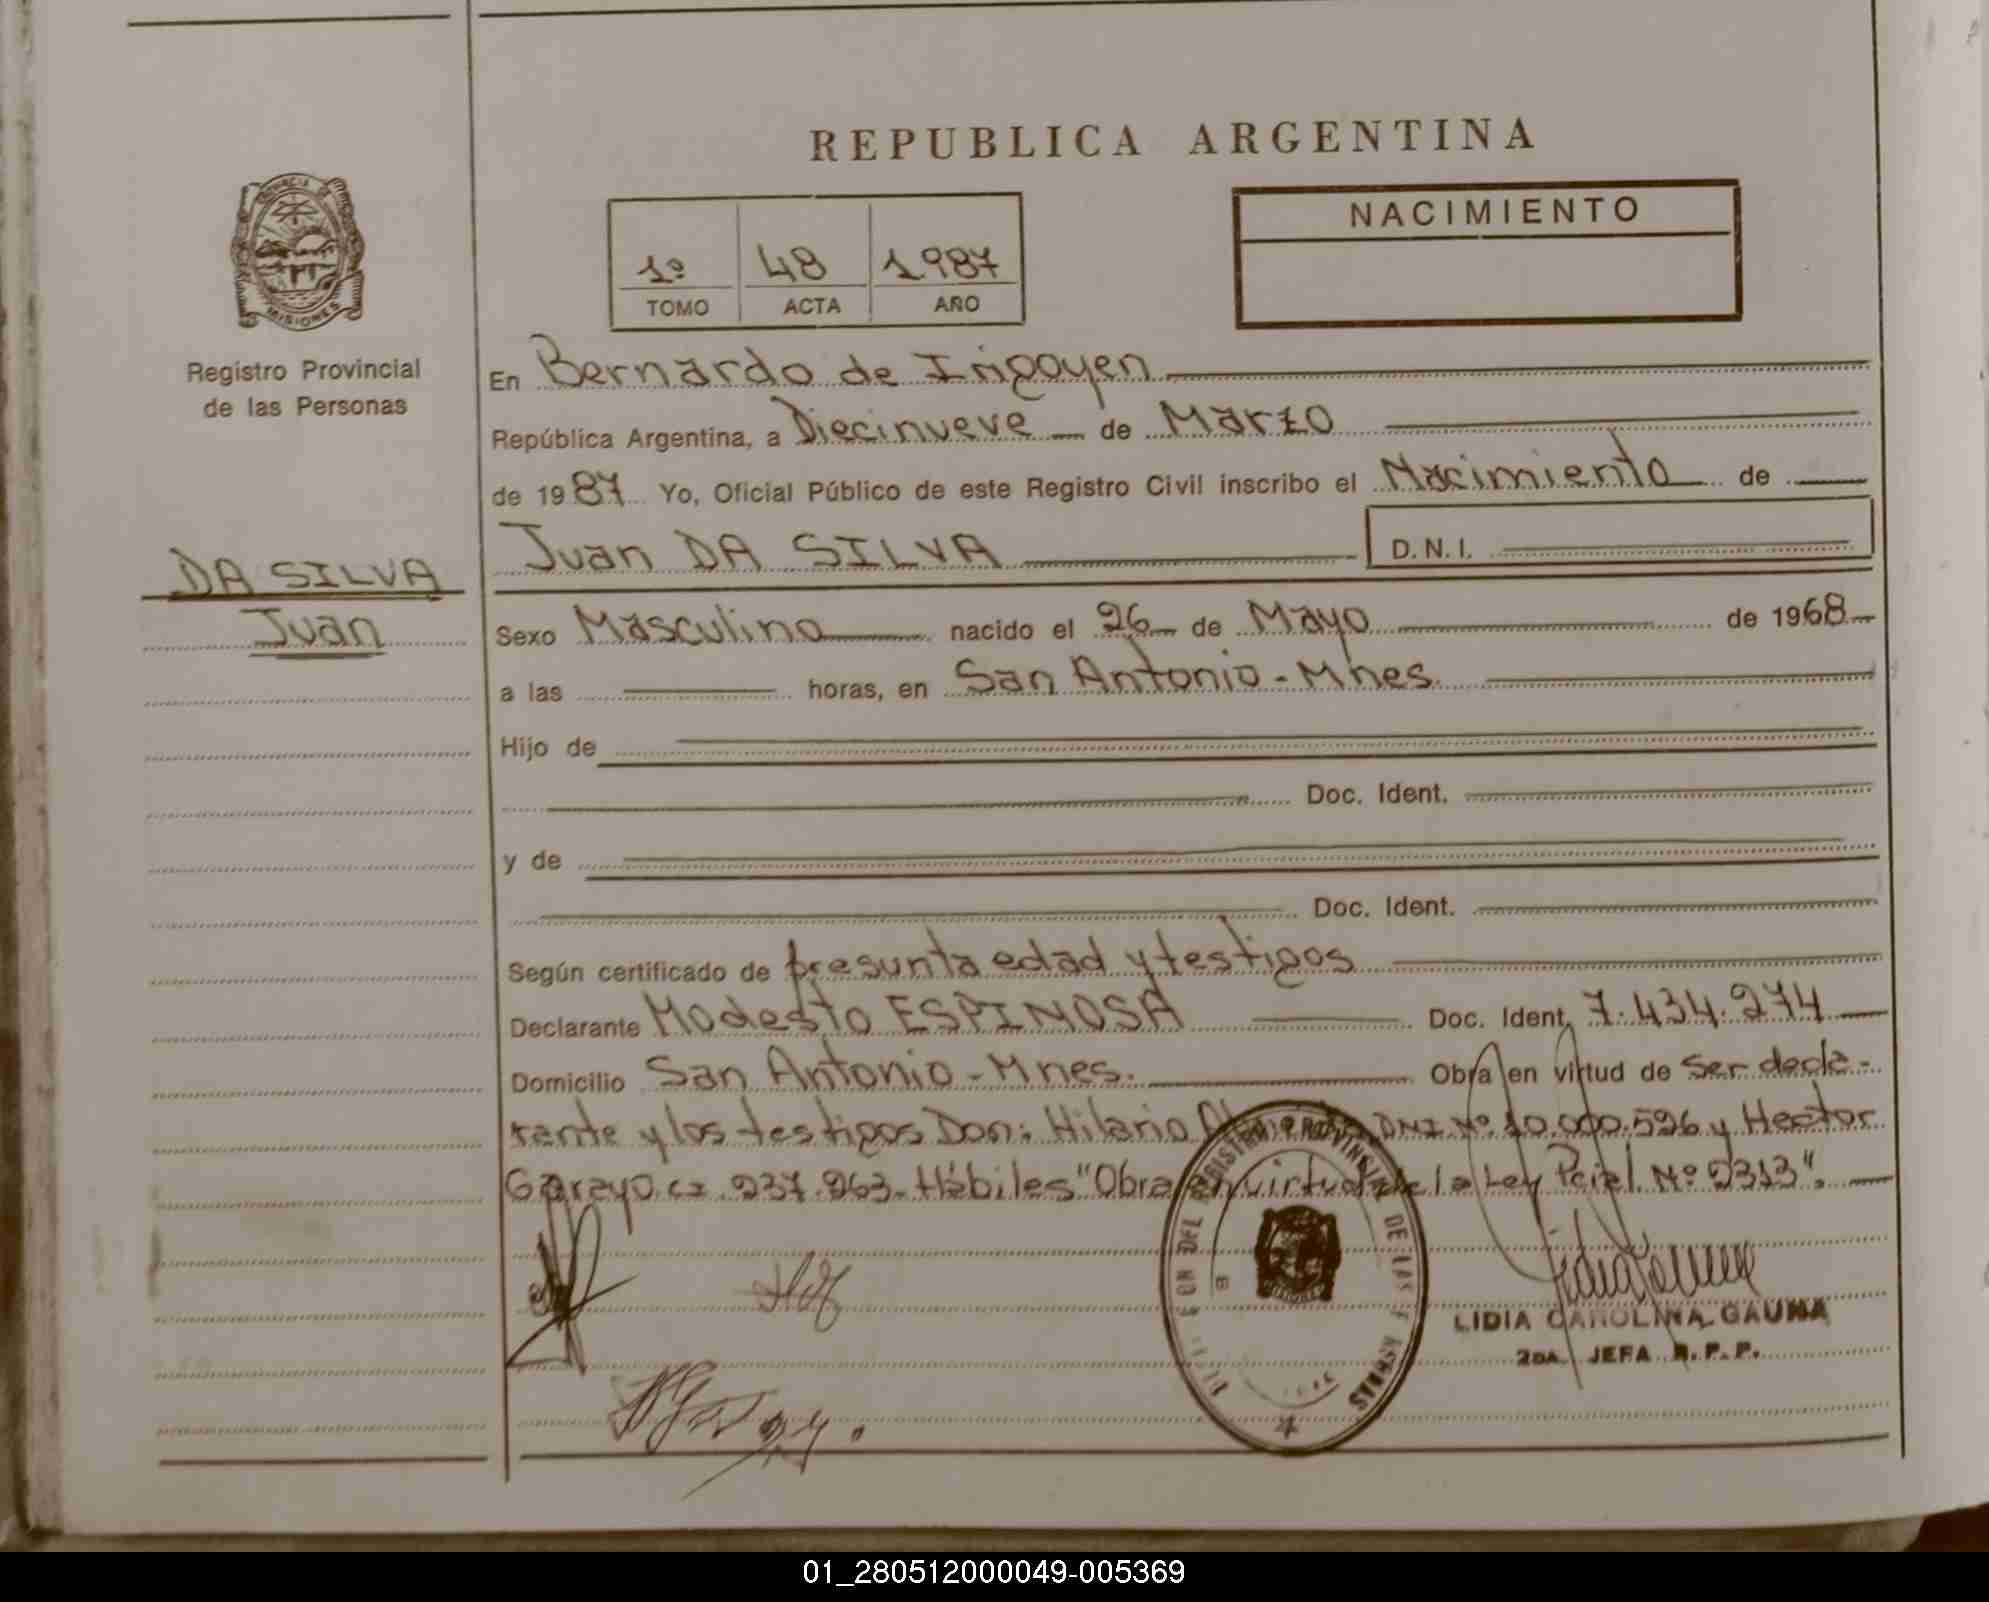 REPUBLICA ARGENTINA
NACIMIENTO
1º 48 1987
TOMO ACTA AÑO
PROVINCIA DE MISIONES
Registro Provincial
de las Personas
En Bernardo de Irigoyen
República Argentina, a Diecinueve de Marzo
de 1987 Yo, Oficial Público de este Registro Civil inscribo el Nacimiento de
Juan DA SILVA D.N.I.
DA SILVA
Juan
Sexo Masculino nacido el 26 de Mayo de 1968
a las horas, en San Antonio - Mnes.
Hijo de
Doc. Ident.
y de
Doc. Ident.
Según certificado de presunta edad y testigos
Declarante Modesto ESPINOSA Doc. Ident. 7.434.274
Domicilio San Antonio - Mnes. Obra en virtud de ser decla-
rante y los testigos Don: Hilario DNI Nº 10.000.596 y Hector
Garayo ci. 237.263. Hábiles "Obra en virtud de la Ley Pcial. Nº 2313".
DEL REGISTRO PROVINCIAL DE LAS PERSONAS
LIDIA CAROLINA GAUNA
2DA. JEFA R. P. P.
01_280512000049-005369